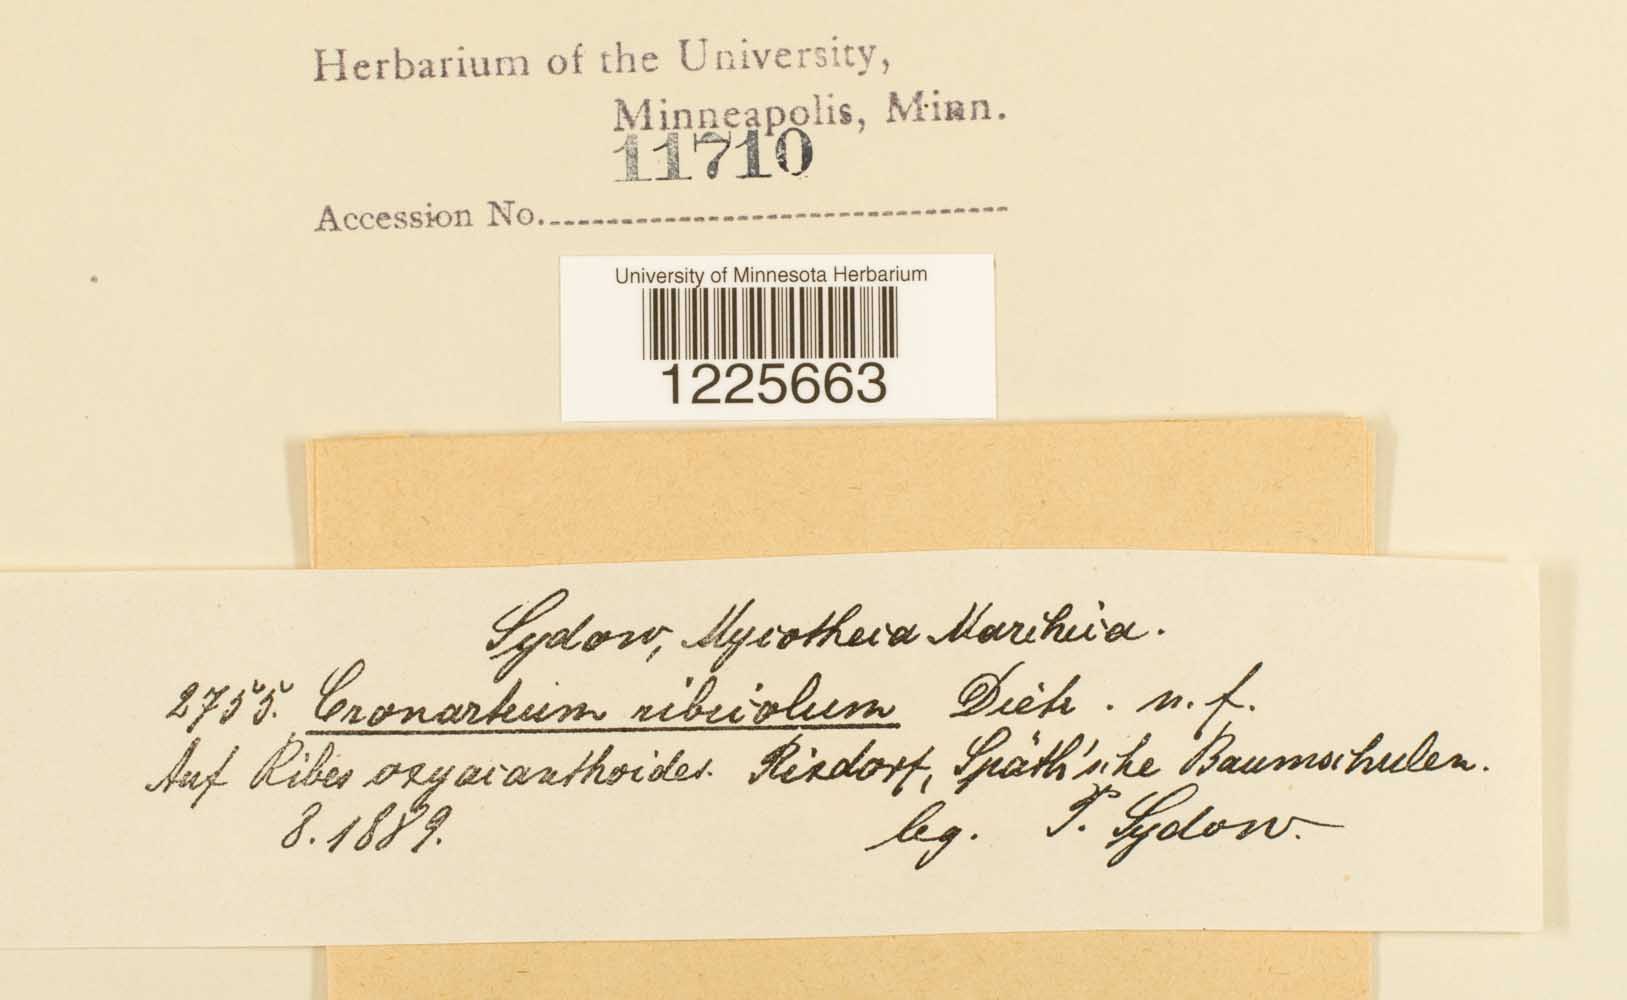 Herbarium of the University,
Minneapolis, Minn.
11710
Accession No.
University of Minnesota Herbarium
1225663
Sydow, Mycotheca Marchica.
2755. Cronartium ribicolum Dietr. n. f.
Auf Ribes oxyacanthoides. Rixdorf, Späth'sche Baumschulen.
8. 1889. leg. P. Sydow.